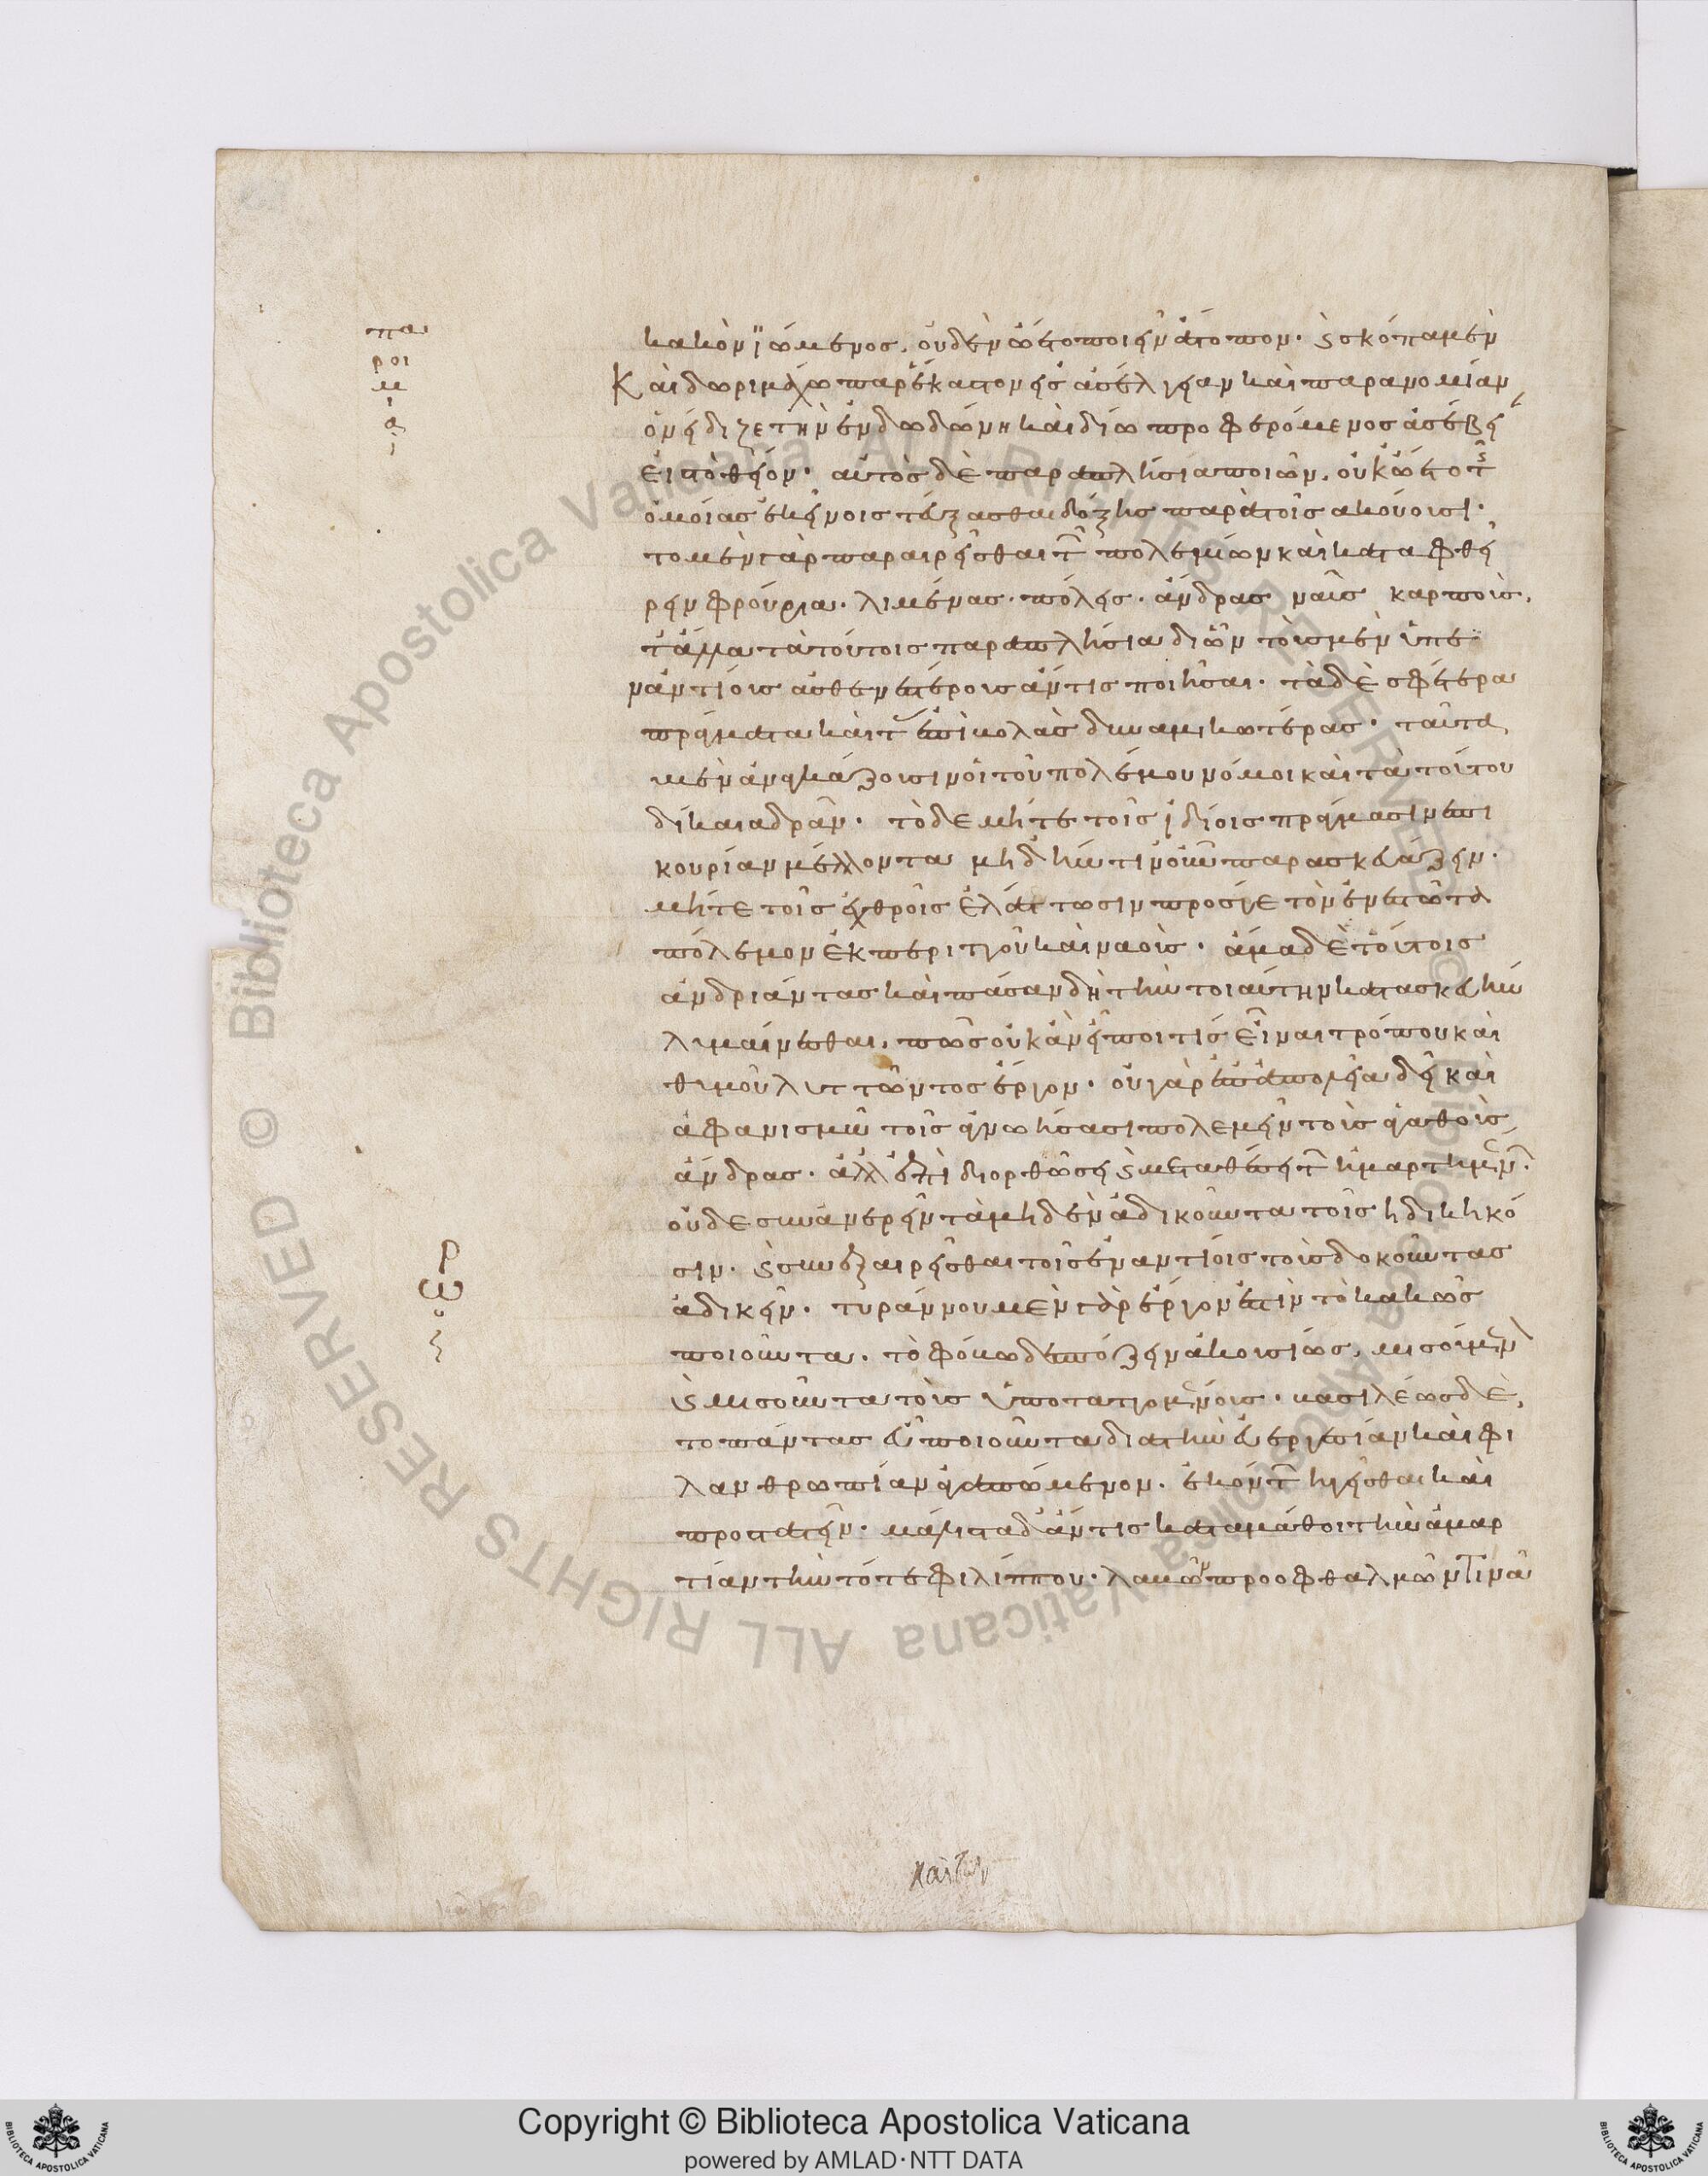 πα
ροι
μ
ί
α
ι
κακὸν ἰώμενος, οὐδὲν ᾤετο ποιεῖν ἄτοπον. καὶ σκόπαι μὲν
Καὶ δωριμάχω παρέκαστον εἰς ἀσέλγειαν καὶ παρανομίαν
ὀνείδιζε τὴν ἐν δωδώνη καὶ δίω προφερόμενος ἀσέβει
εἰς τὸ θεῖον. αὐτὸς δὲ παραπλήσια ποιῶν, οὐκ ᾤετο τῆς
ὁμοίας ἐκείνοις τεύξασθαι δόξης παρὰ τοῖς ἀκούουσι.
το μὲν γὰρ παραιρεῖσθαι τῶν πολεμίων καὶ καταφθεί
ρειν φρούρια. λιμένας. πόλεις. ἄνδρας ναῦς καρπούς.
τἄλλα τὰ τούτοις παραπλήσια δι ὧν τοὺς μὲν ὑπε
ναντίους ἀσθενεστέρους ἄν τις ποιήσαι. τὰ δὲ σφέτερα
πράγματα καὶ τὰς ἐπιβολὰς δυναμικωτέρας. ταῦτα
μὲν ἀναγκάζουσιν οἱ τοῦ πολέμου νόμοι καὶ τὰ τούτου
δίκαια δρᾶν. τὸ δε μήτε τοῖς ἰδίοις πράγμασιν ἐπι
κουρίαν μέλλοντα μηδ ἡντινοῦν παρασκευάζειν.
μήτε τοῖς ἐχθροῖς ἐλάττωσιν πρός γε τὸν ἐνεστῶτα
πόλεμον ἐκ περιττοῦ καὶ ναοὺς. ἅμα δὲ τούτοις
ἀνδριάντας καὶ πᾶσαν δὴ τὴν τοιαύτην κατασκευὴν
λυμαίνεσθαι, πῶς οὐκ ἂν εἴποι τίς εἶναι τρόπου καὶ
θυμοῦ λυττῶντος ἔργον. οὐ γὰρ ἐπ ἀπολεία δεῖ καὶ
ἀφανισμῶ τοῖς ἀγνοήσασι πολεμεῖν τοὺς ἀγαθοὺς
ἄνδρας. ἀλλ ἐπὶ διορθώσει καὶ μεταθέσει τῶν ἡμαρτημένων.
οὐδε συναναιρεῖν τὰ μηδὲν ἀδικοῦντα τοῖς ἠδικηκό
σιν. καὶ συνεξαιρεῖσθαι τοῖς ἐναντίοις τοὺς δοκοῦντας
ἀδικεῖν. τυράννου μὲν γὰρ ἔργον ἐστὶν τὸ κακῶς
ποιοῦντα. τὸ φόβω δεσπόζειν ἀκουσίως, μισούμενον
καὶ μισοῦντα τοὺς ὑποταττομένους. βασιλέως δὲ,
το πάντας εὖ ποιοῦντα δια τὴν εὐεργεσίαν καὶ φι
λανθρωπίαν ἀγαπώμενον. ἑκόντων ἡγεῖσθαι καὶ
προστατεῖν. μάλιστα δ ἄν τις καταμάθοι τὴν ἁμαρ
τίαν τὴν τότε φιλίππου. λαβὼν προ οφθαλμῶν τίνα
ρ
ω
καὶ τῶν